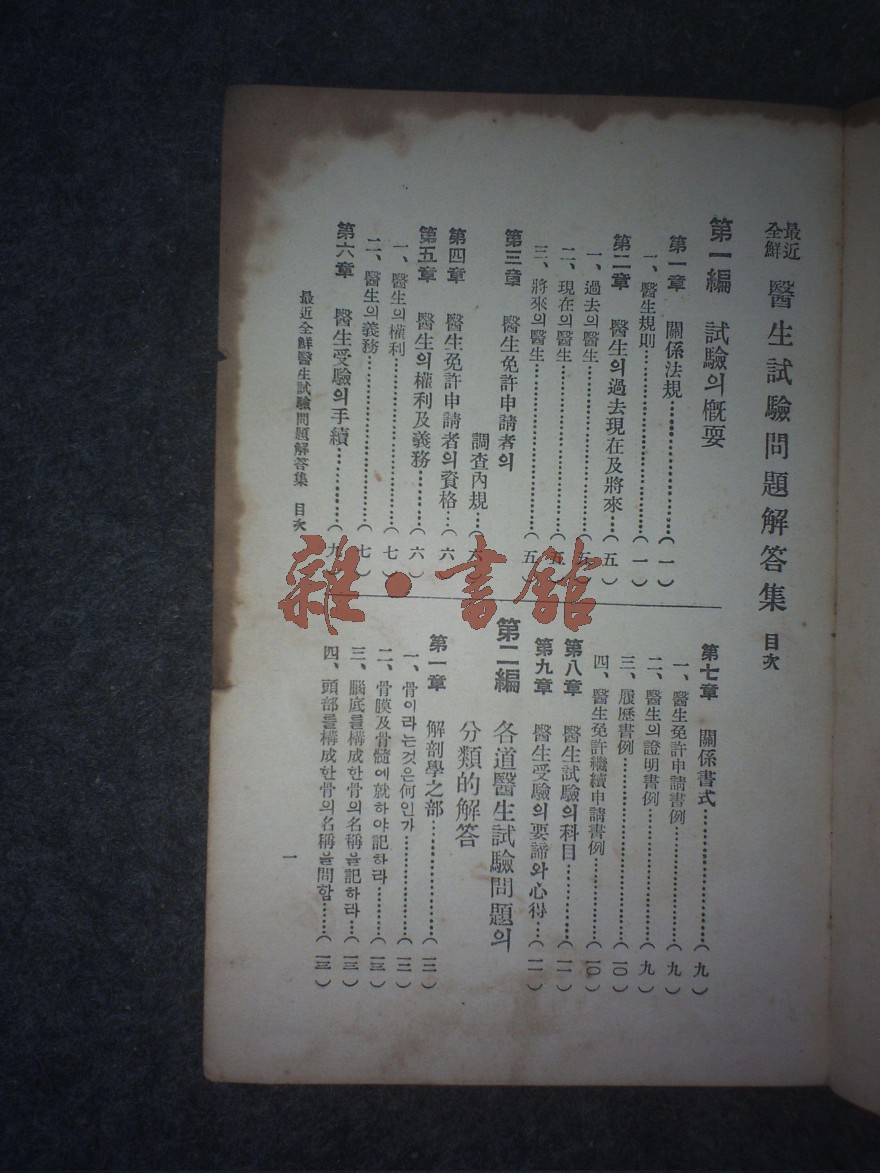 最近全鮮 醫生試驗問題解答集 目次
第一編 試驗의槪要
第一章 關係法規……(一)
一、醫生規則……(一)
第二章 醫生의過去現在及將來…(五)
一、過去의醫生……(五)
二、現在의醫生……(五)
三、將來의醫生……(五)
第三章 醫生免許申請者의
調査內規…(六)
第四章 醫生免許申請者의資格…(六)
第五章 醫生의權利及義務……(六)
一、醫生의權利……(七)
二、醫生의義務……(七)
第六章 醫生受驗의手續……(九)
第七章 關係書式……(九)
一、醫生免許申請書例……(九)
二、醫生의證明書例……(九)
三、履歷書例……(一〇)
四、醫生免許繼續申請書例……(一〇)
第八章 醫生試驗의科目……(一一)
第九章 醫生受驗의要諦와心得…(一一)
第二編 各道醫生試驗問題의
分類的解答
第一章 解剖學之部……(一二)
一、骨이라는것은何인가……(一二)
二、骨膜及骨髓에就하야記하라……(一三)
三、腦底를構成한骨의名稱을記하라…(一三)
四、頭部를構成한骨의名稱을問함…(一三)
最近全鮮醫生試驗問題解答集 目次
一
雜·書館